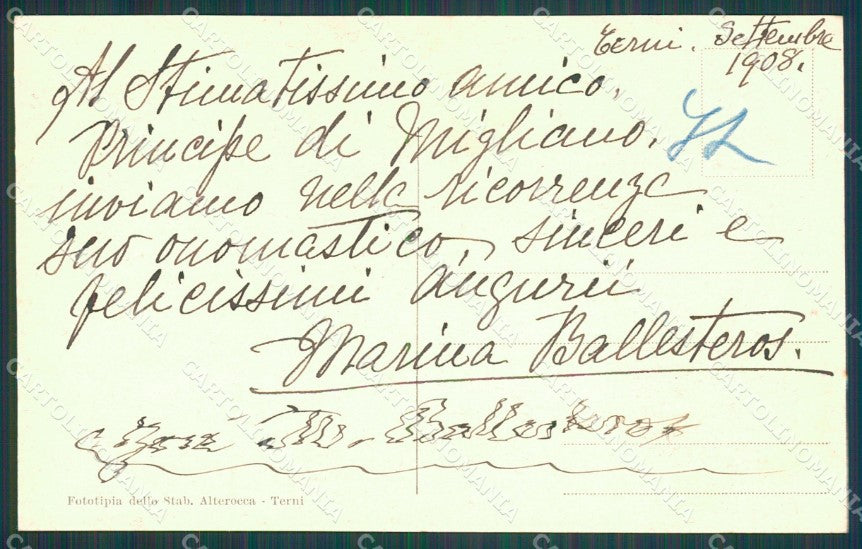 Terni. Settembre
1908.
Al Stimatissimo amico.
Principe di Migliano.
inviamo nella ricorrenza
suo onomastico, sinceri e
felicissimi auguri
Marina Ballesteros.
M. Ballesteros
Fototipia dello Stab. Alterocca - Terni
CARTOLINOMANIA